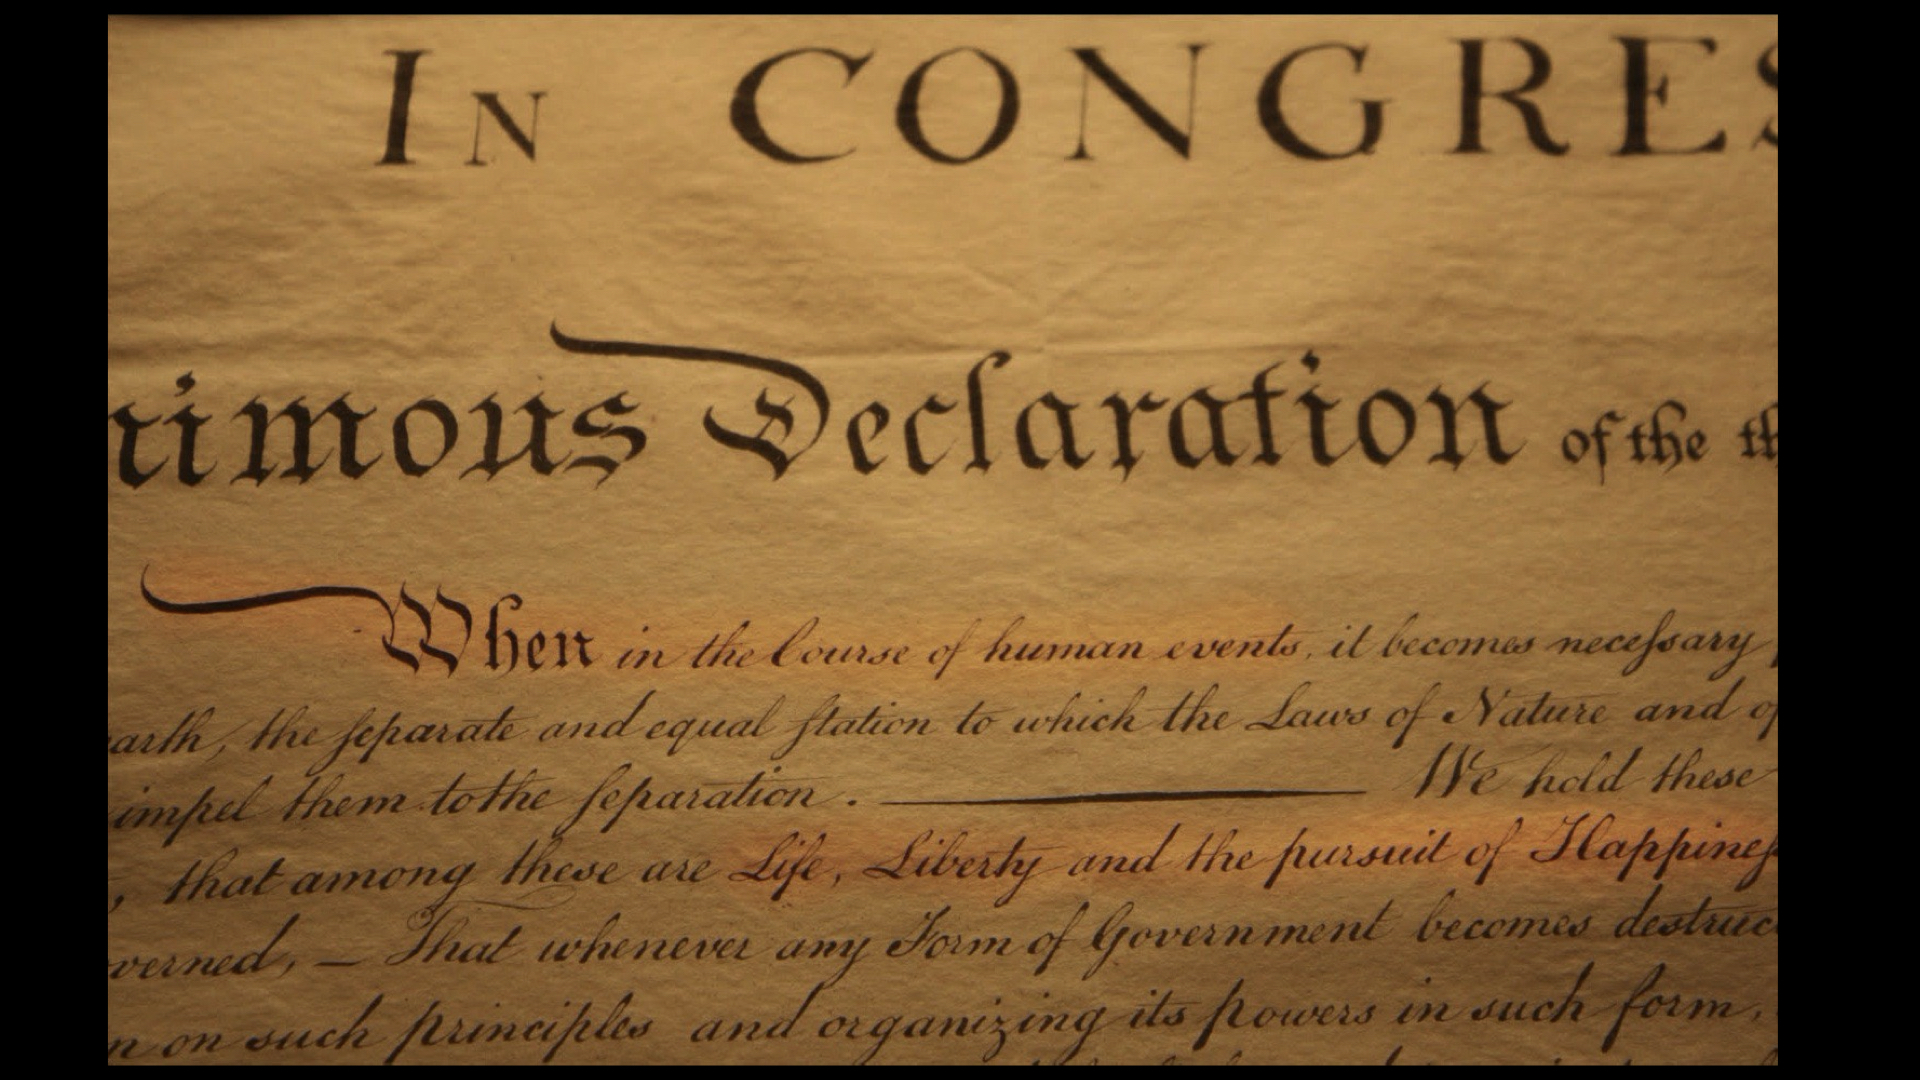 In CONGRES
nimous Declaration of the th
When in the Course of human events, it becomes neceſsary
arth, the ſeparate and equal ſtation to which the Laws of Nature and of
impel them to the ſeparation. — We hold these
, that among these are Life, Liberty and the pursuit of Happineſs
verned, — That whenever any Form of Government becomes destruc
n on such principles and organizing its powers in such form,